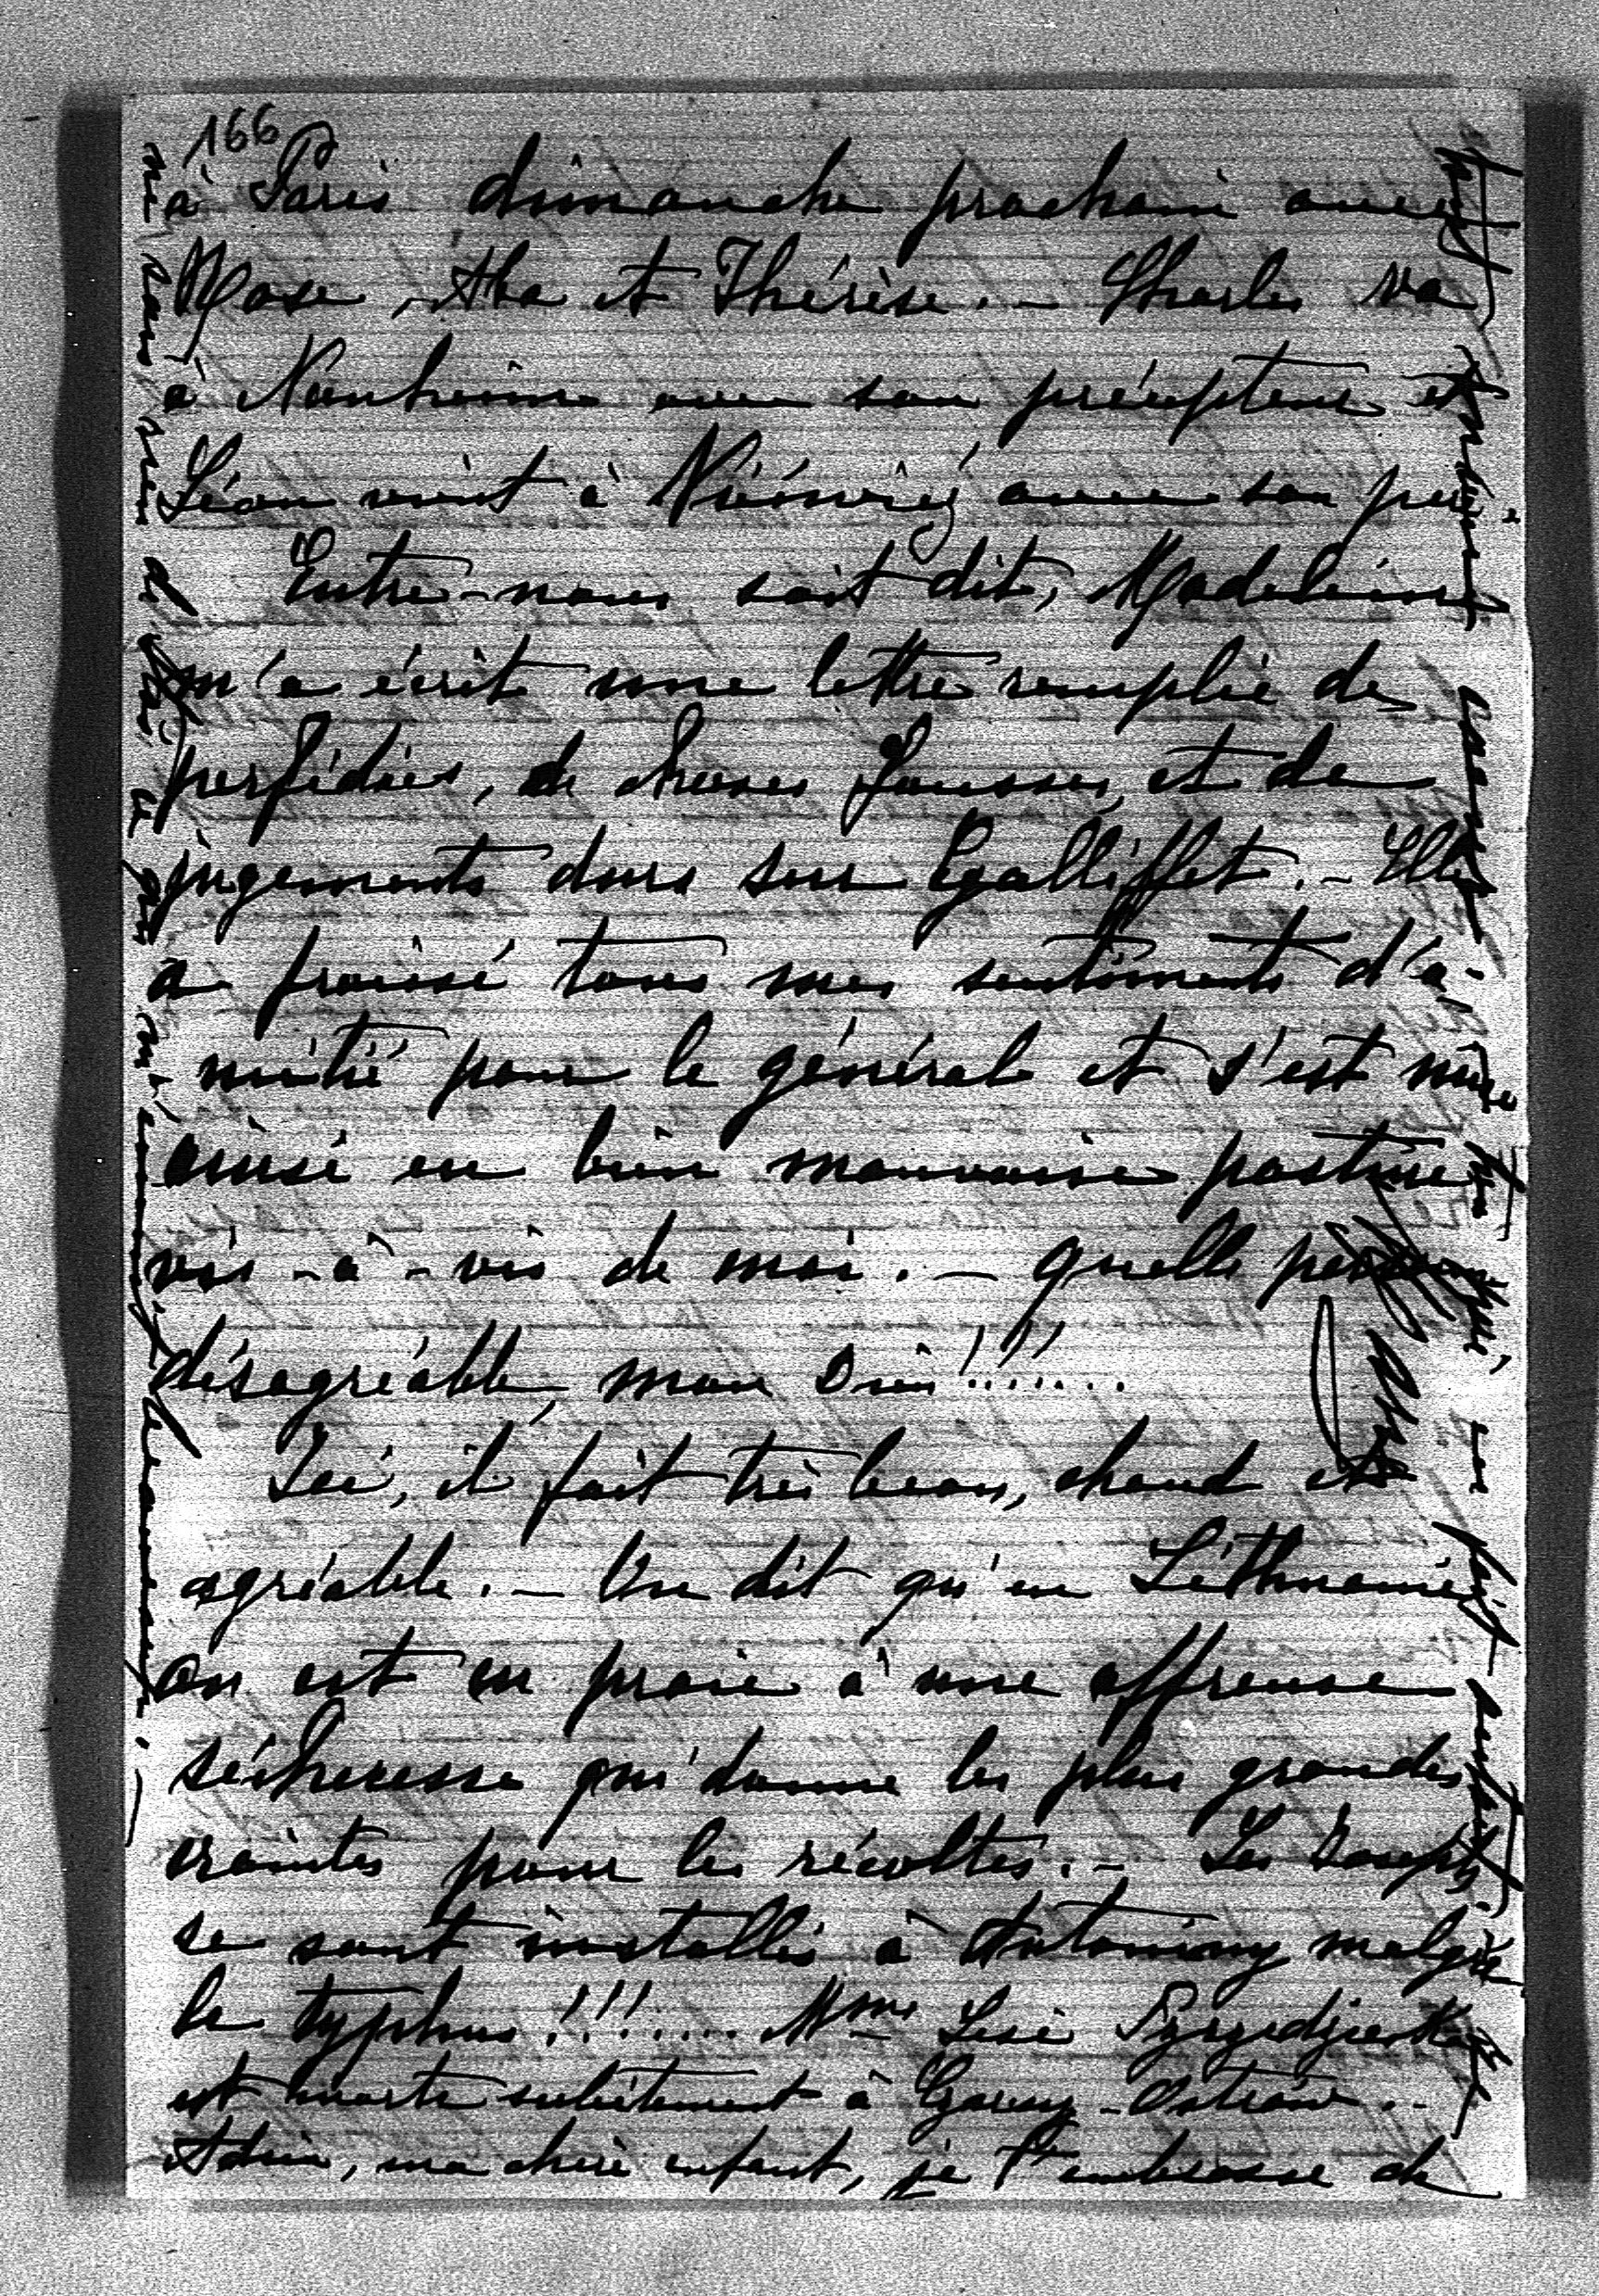 166
à Paris dimanche prochain avec
Rose, Aba et Thérèse. - Charles va
à Nauheim avec son précepteur et
Léon vient à Nieśwież avec son père.
Entre-nous soit dit, Madeleine
m'a écrit une lettre remplie de
perfidies, de choses fausses, et de
jugements durs sur Galliffet. - Elle
a froissé tous mes sentiments d'a-
mitié pour le général et s'est mise
ainsi en bien mauvaise posture
vis-à-vis de moi. - quelle
désagréable, mon Dieu!!!....
Ici, il fait très beau, chaud et
agréable. - On dit qu'en Lithuanie
on est en proie à une affreuse
sécheresse qui donne les plus grandes
craintes pour les récoltes. - Les Joseph
se sont installés à Antoniny malgré
le typhus!!!..... Mme
est morte subitement à -Ostrów..
Adieu, ma chère enfant, je t'embrasse de